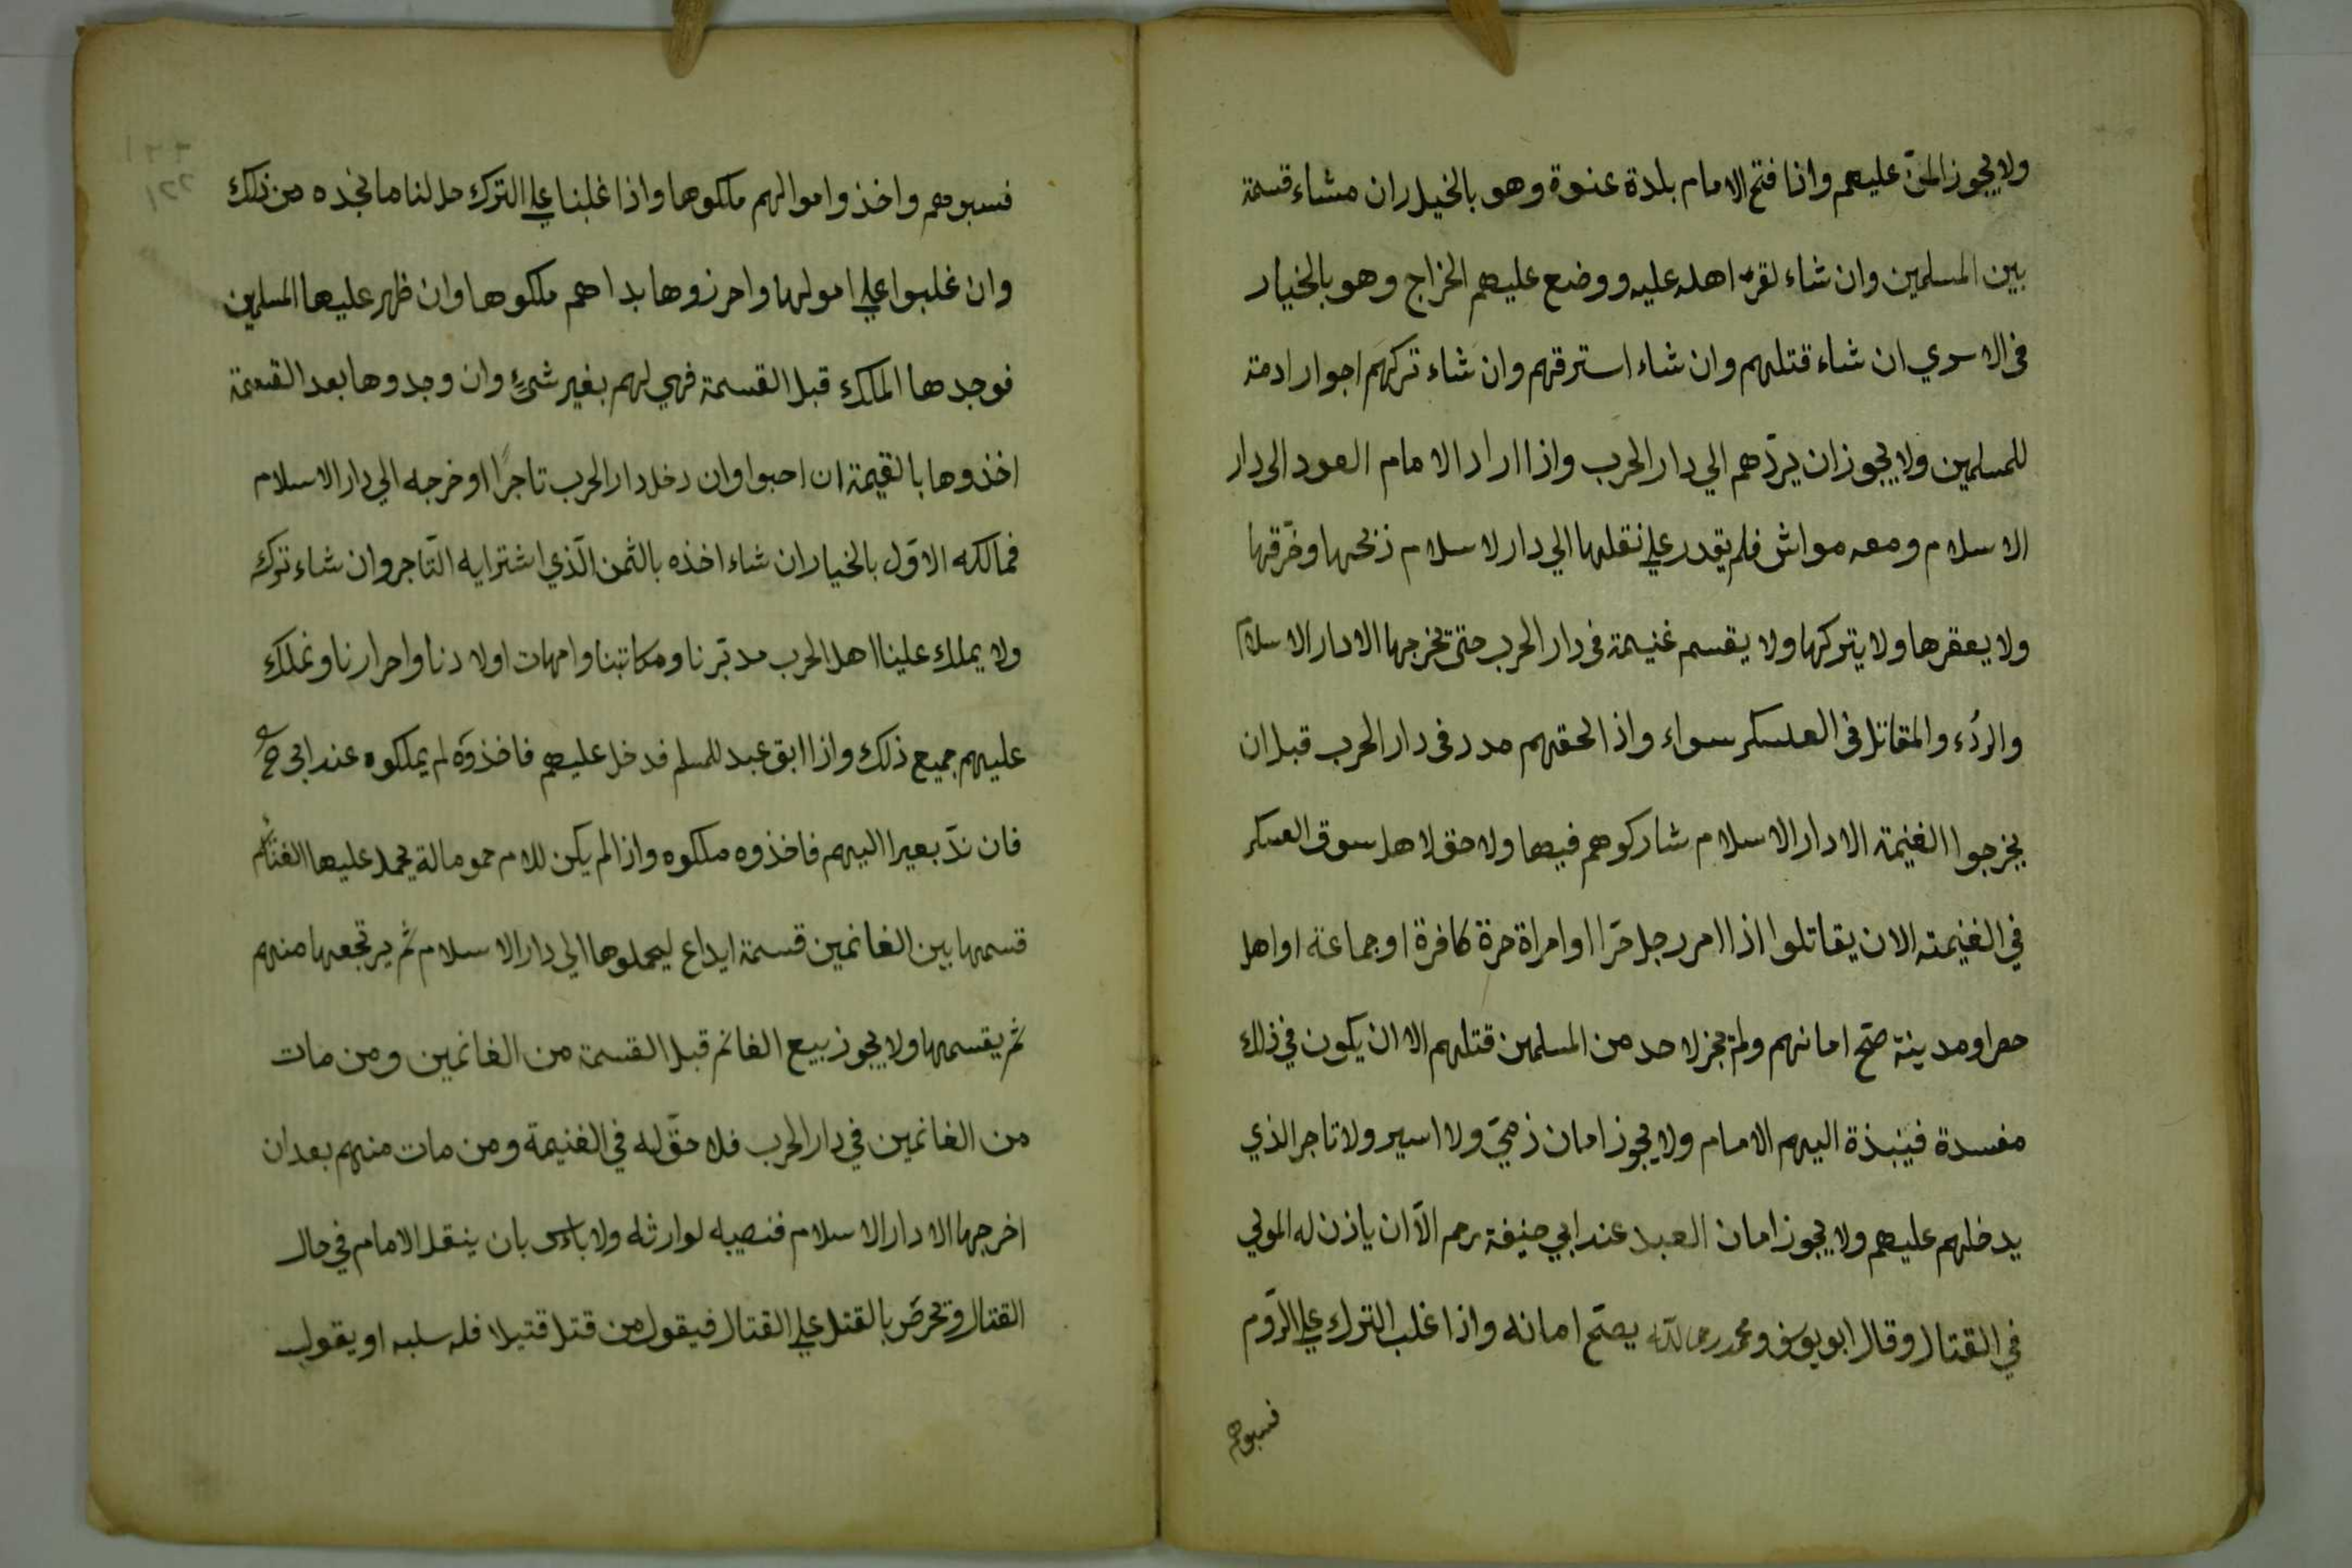 ولا يجوز المنّ عليهم واذا فتح الامام بلدة عنوة وهو بالخيار ان مشاء قسمة
بين المسلمين وان شاء لقرّ اهله عليه ووضع عليهم الخراج وهو بالخيار
فى الاسري ان شاء قتلهم وان شاء استرقهم وان شاء تركهم اجوار ادمة
للمسلمين ولا يجوز ان يردّهم الي دار الحرب واذا اراد الامام العود الى دار
الاسلام ومعه مواش فلم يقدر علي نقلها الي دار لاسلام ذبحها وخرّقها
ولا يعقرها ولا يتركها ولا يقسم غنيمة فى دار الحرب حتى تخرجها الا دار الاسلام
والردُء والمقاتل فى العسكر سواء واذا لحقهم مدد فى دار الحرب قبل ان
يخرجوا الغنيمة الا دار الاسلام شاركوهم فيها ولا حق لاهل سوق العسكر
في الغنيمة الا ان يقاتلوا اذا امر رجل حرّا او امراة حرة كافرة او جماعة او اهل
حصر او مدينة صحّ امانهم ولم تجز لاحد من المسلمين قتلهم الا ان يكون في ذلك
مفسدة فينبذة اليهم الامام ولا يجوز امان ذميّ ولا اسير ولا تاجر الذي
يدخلهم عليهم ولا يجوز امان العبد عند ابي حنيفة رحم الّا ان ياذن له المولي
في القتال وقال ابو يوسف ومحمد رحمالله يصحّ امانه واذا غلب الترك علي الرّوم
فسبوهم
فسبوهم واخذوا موالهم ملكوها واذا غلبنا علي الترك حل لنا ما نجده من ذلك
وان غلبوا علي امولها واحرزوها بداهم ملكوها وان ظهر عليها المسلمين
فوجدها المالك قبل القسمة فهي لهم بغير شئ وان وجدوها بعد القسمة
اخذوها بالقيمة ان احبوا وان دخل دار الحرب تاجرًا اوخرجه الي دار الاسلام
فمالكه الاوّل بالخيار ان شاء اخذه بالثمن الّذي اشترايه التّاجر وان شاء ترك
ولا يملك علينا اهل الحرب مدبّرنا ومكاتبنا وامهات اولادنا واحرارنا ونملك
عليهم جميع ذلك واذا ابق عبد للمسلم فدخل عليهم فاخذوه لم يملكوه عند ابى ح
فان ندّ بعير اليهم فاخذوه ملكوه واذا لم يكن للام حمومالة يحمل عليها الغنائم
قسمها بين الغانمين قسمة ايداع ليحملوها الي دار الاسلام ثم يرتجعها منهم
ثم يقسمها ولا يجوز بيع الغانم قبل القسمة من الغانمين ومن مات
من الغانمين في دار الحرب فلا حقّ له في الغنيمة ومن مات منهم بعد ان
اخرجها الا دار الاسلام فنصيبه لوارثله ولا باءس بان ينقل الامام في حال
القتال وتحرضّ بالقتل علي القتال فيقول من قتل قتيلا فله سلبه او يقول